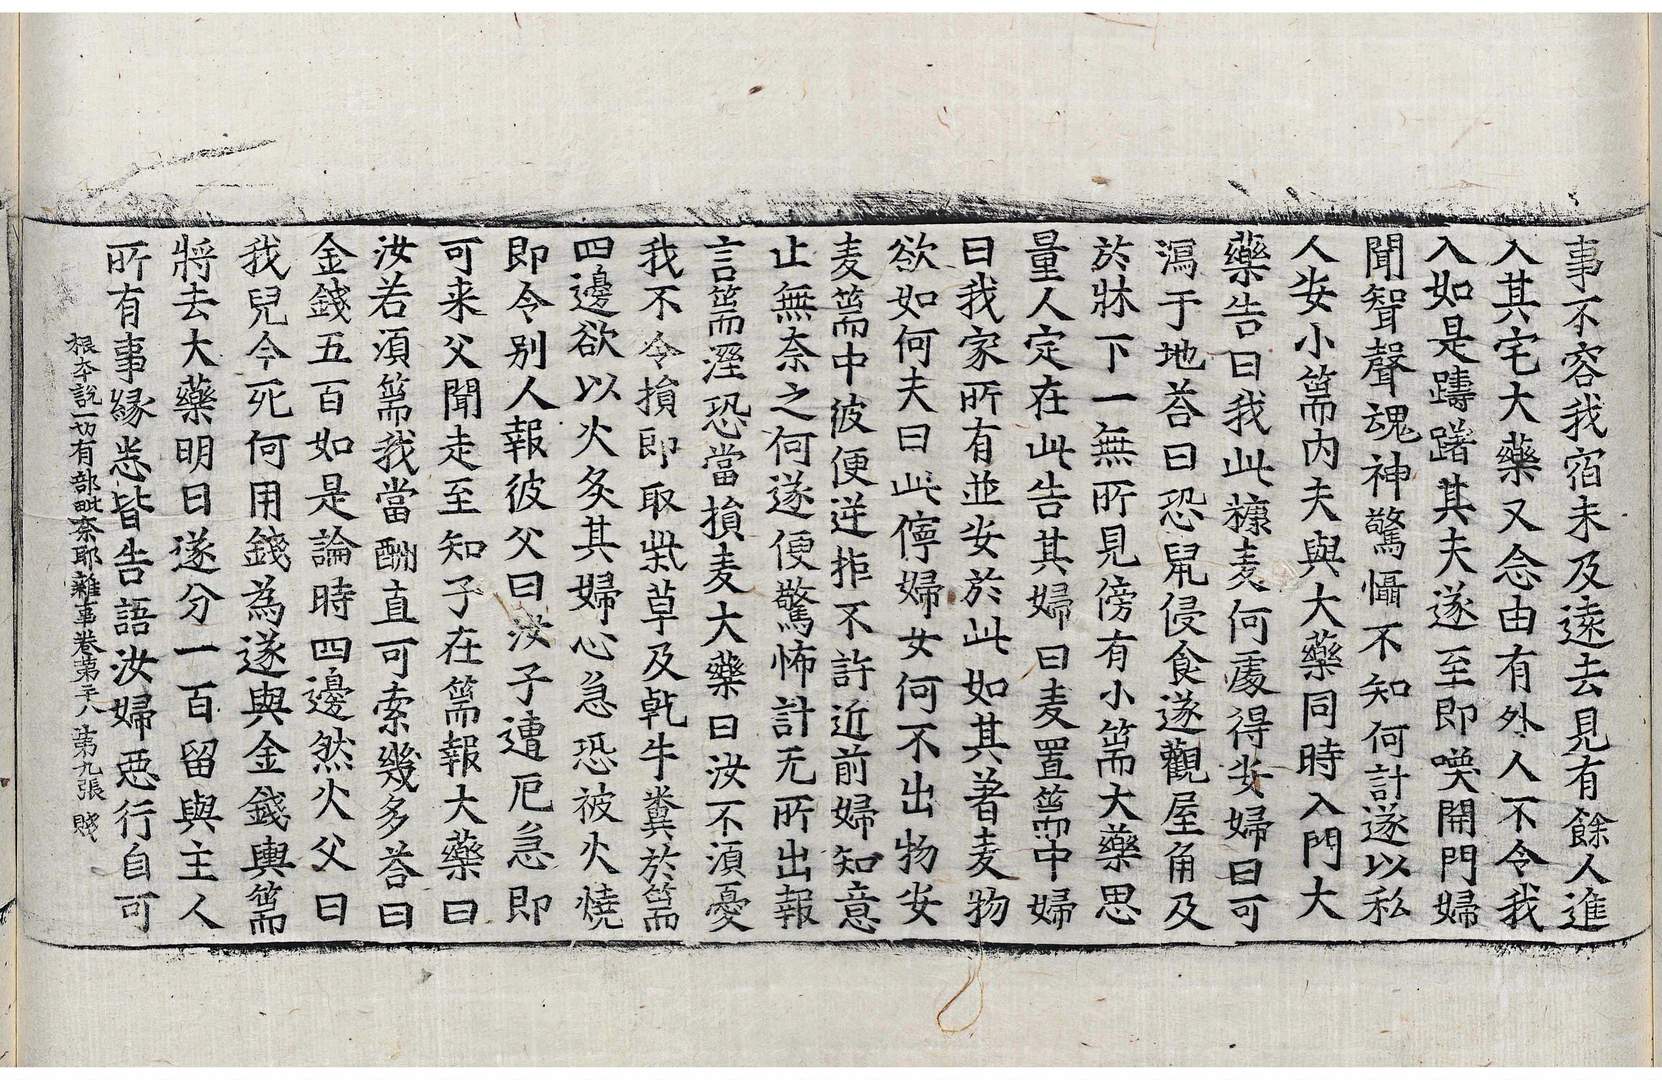 事不容我宿未及遠去見有餘人進
入其宅大藥又念由有外人不令我
入如是躊躇其夫遂至即喚開門婦
聞智聲魂神驚懾不知何計遂以私
人安小篅內夫與大藥同時入門大
藥告曰我此糠麦何處得安婦曰可
瀉于地荅曰恐鼠侵食遂觀屋角及
於牀下一無所見傍有小篅大藥思
量人定在此告其婦曰麦置篅中婦
曰我家所有並安於此如其著麦物
欲如何夫曰此儜婦女何不出物安
麦篅中彼便逆拒不許近前婦知意
止無奈之何遂便驚怖計无所出報
言篅溼恐當損麦大藥曰汝不湏憂
我不令損即取柴草及乾牛糞於篅
四邊欲以火炙其婦心急恐被火燒
即令別人報彼父曰汝子遭厄急即
可来父聞走至知子在篅報大藥曰
汝若湏篅我當酬直可索幾多荅曰
金錢五百如是論時四邊然火父曰
我兒今死何用錢為遂與金錢輿篅
將去大藥明日遂分一百留與主人
所有事縁悉皆告語汝婦惡行自可
根本說一切有部毗奈耶雜事卷第二十八 第九張 賤